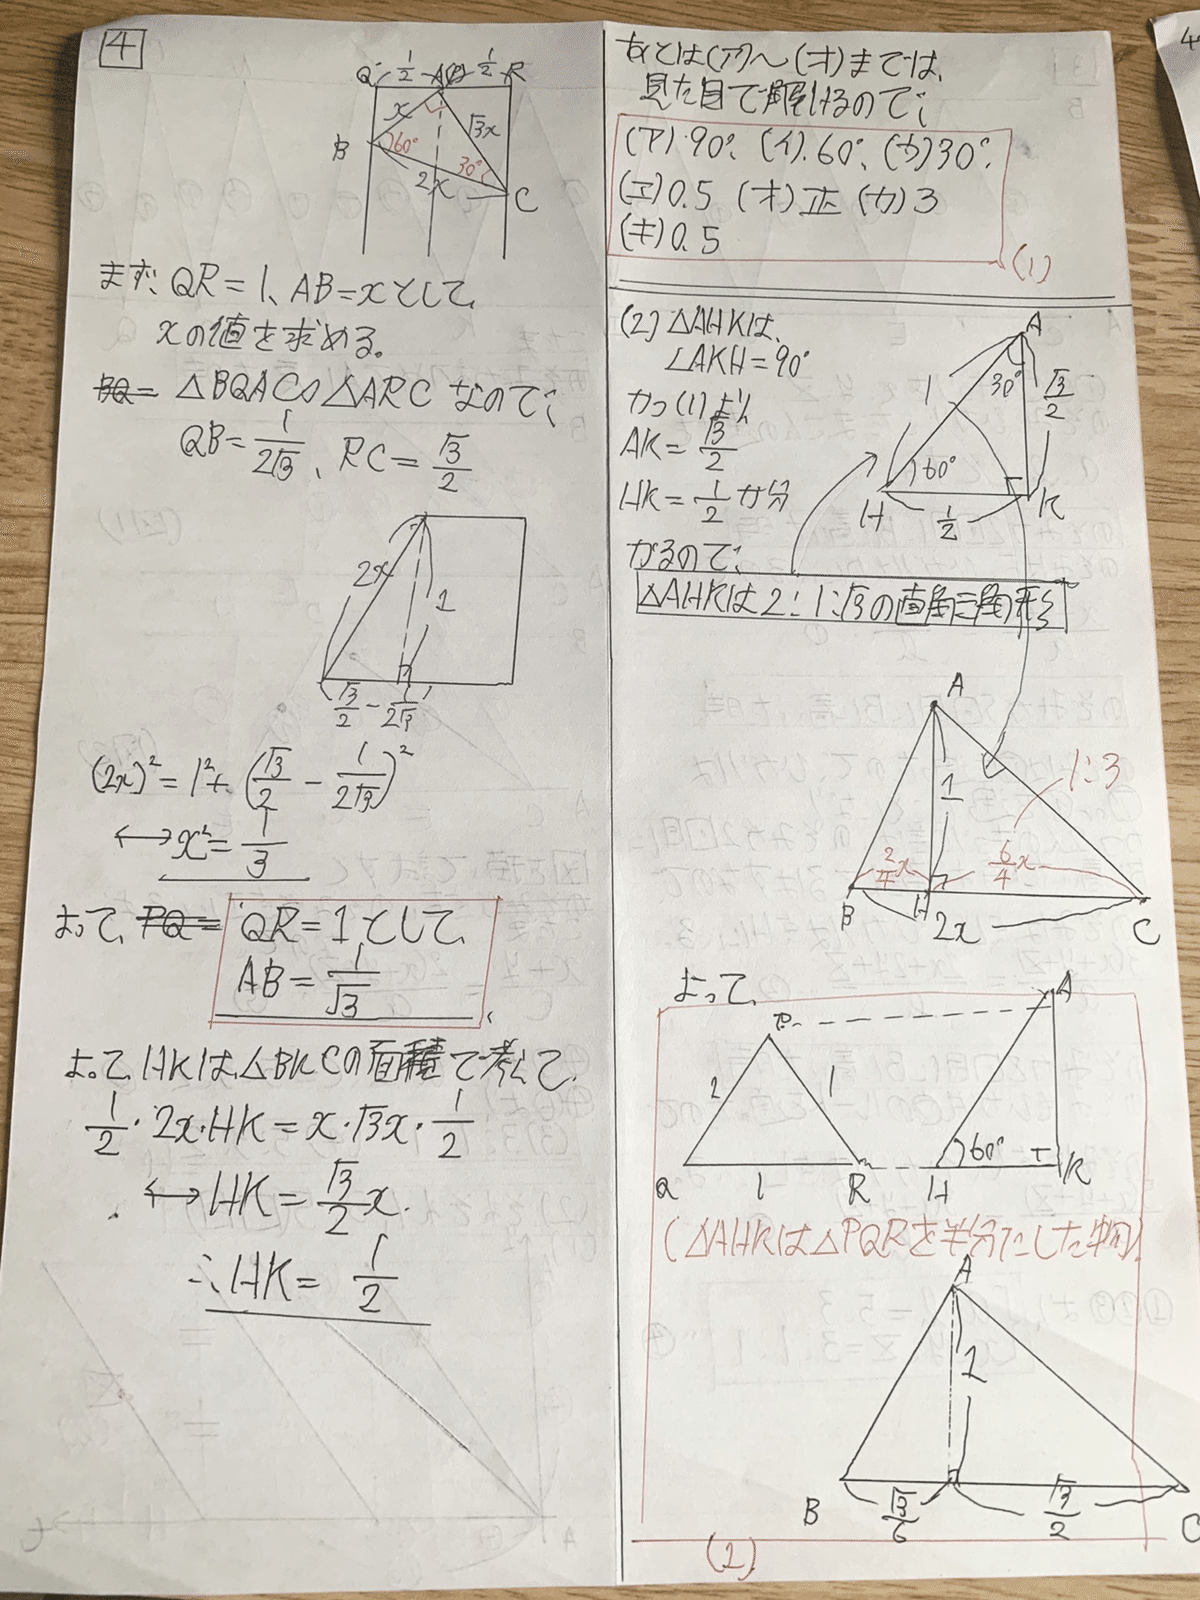 4
Q 1/2 A 1/2 R
x √3x
B 60° 30°
2x C
まず、QR=1、AB=xとして、
xの値を求める。
△BQA∽△ARCなので、
QB=1/2√3、RC=√3/2
2x 1
√3/2 - 1/2√3
(2x)²=1²+(√3/2 - 1/2√3)²
↔x²=1/3
よって、QR=1として、
AB=1/√3
よって、HKは、△BKCの面積で考えて、
1/2・2x・HK=x・√3x・1/2
↔HK=√3/2x.
∴HK=1/2
あとは(ア)～(オ)までは、
見た目で解けるので、
(ア)・90°、(イ).60°、(ウ)30°.
(エ)0.5 (オ)正 (カ)3
(キ)0.5
(1)
(2)△AHKは、
∠AKH=90°
かつ(1)より
AK=√3/2
HK=1/2が分
かるので、
A
1 30° √3/2
60°
H 1/2 K
△AHKは2:1:√3の直角三角形
A
1 1:3
2/4x 6/4x
B H 2x C
よって、
P A
2 1
60°
Q 1 R H K
(△AHKは△PQRを半分にした物)
A
1
B √3/6 √3/2 C
(2)